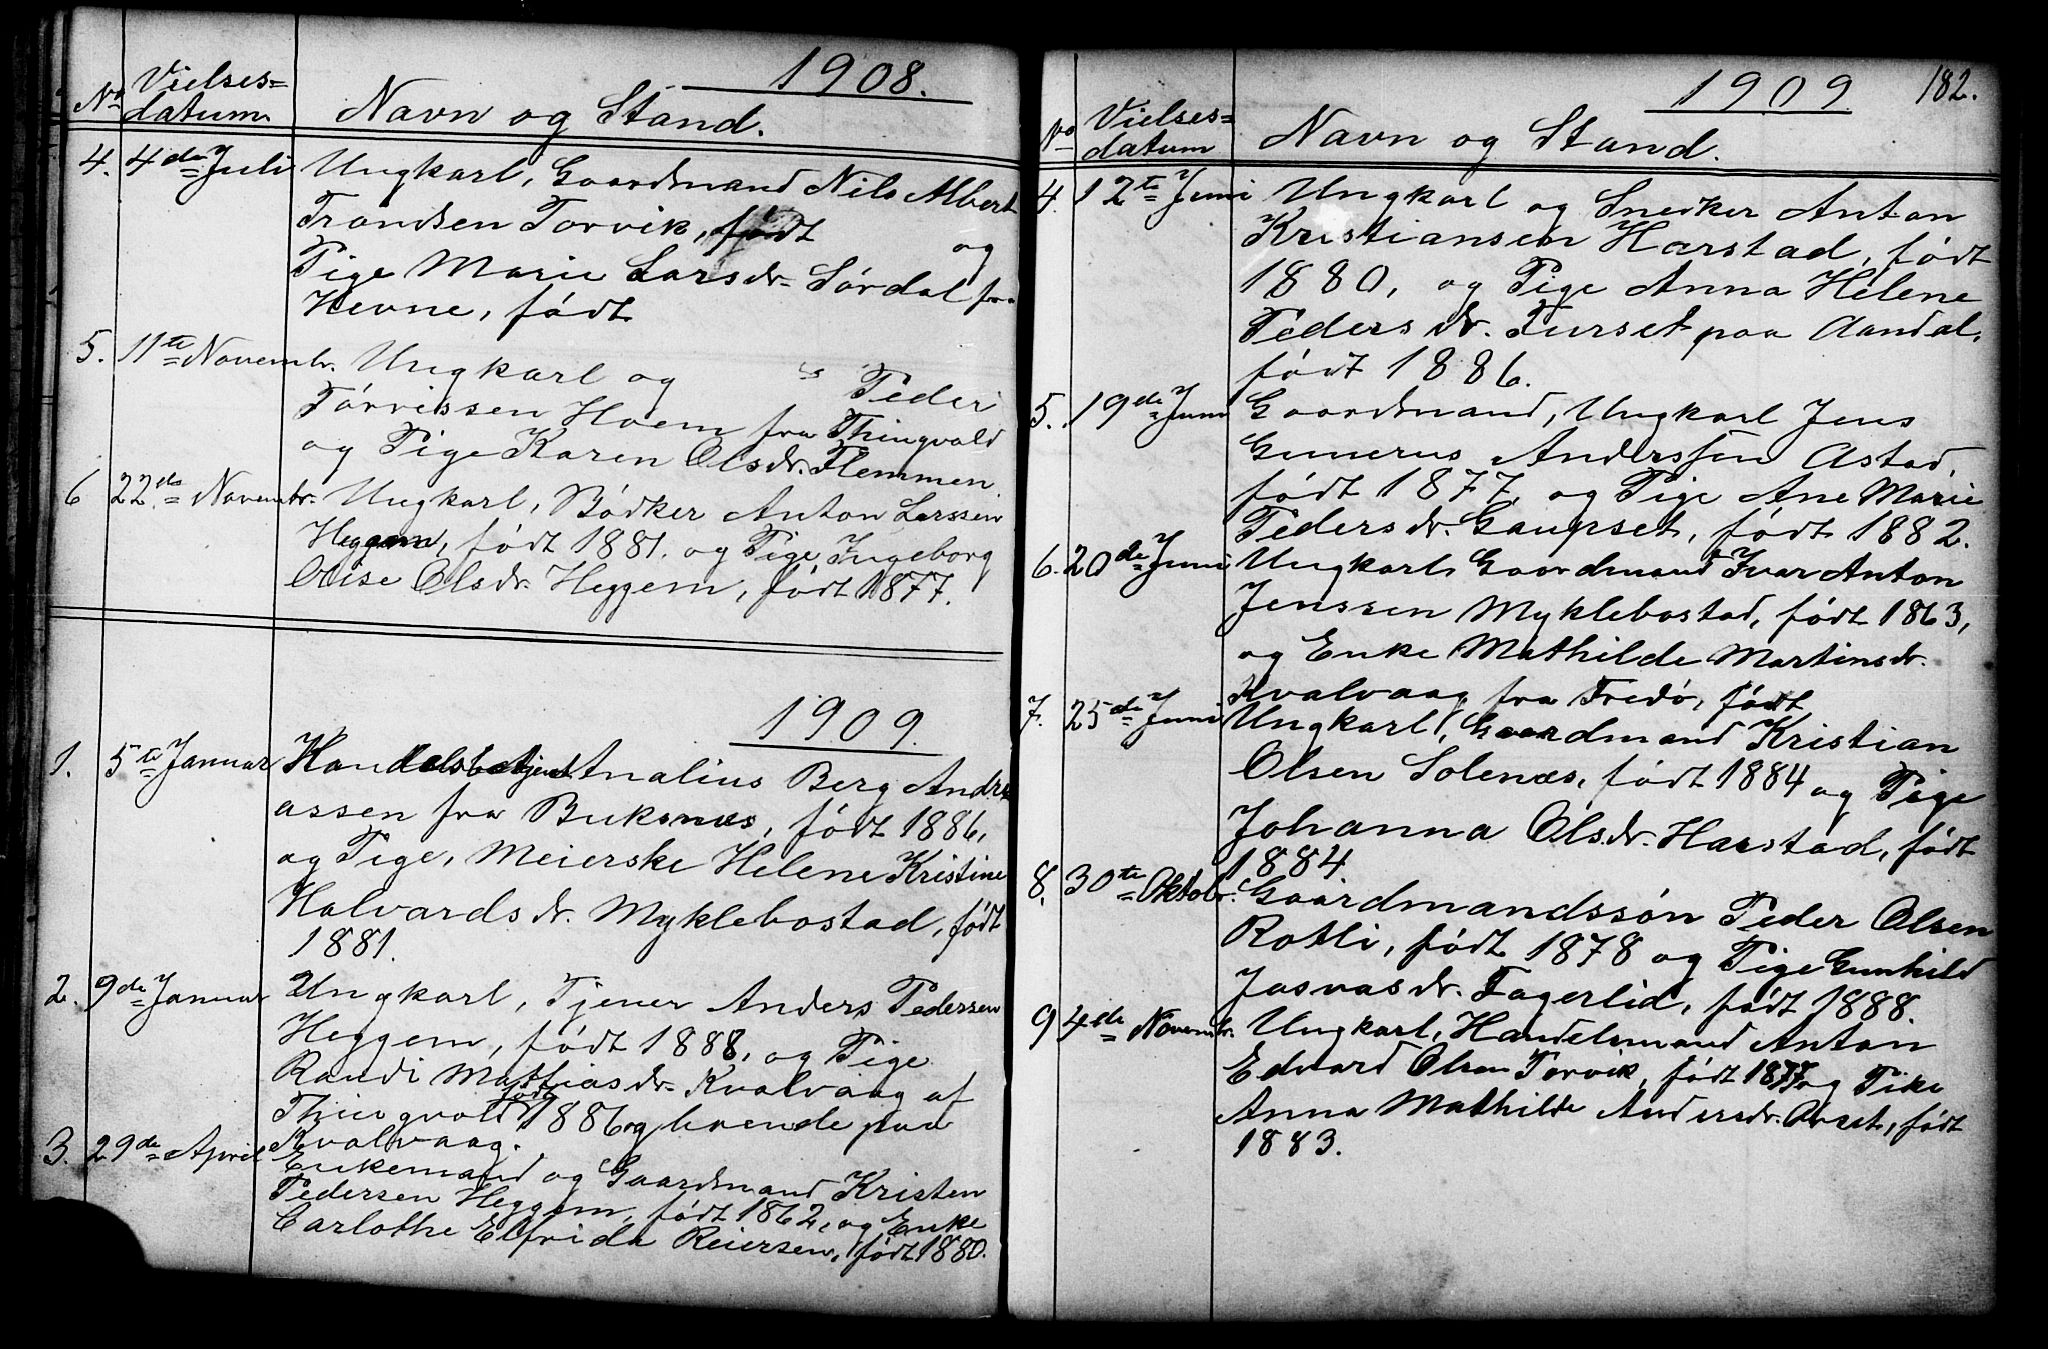 1908.
No Vielses=
datum. Navn og Stand.
4. 4de Juli Ungkarl, Gaardmand Nils Albert
Trondsen Torvik, født og
Pige Marie Larsdr. Sørdal fra
Hevne, født
5. 11te Novembr. Ungkarl og Peder
Tørrissen Hoem fra Thingvold
og Pige Karen Olsdr. Flemmen
6 22de Novembr. Ungkarl, Bødker Anton Larssen
Heggem, født 1881. og Pige Ingeborg
Olise Olsdr. Heggem, født 1877.
1909.
1. 5te Januar Handelsbetjent Analius Berg Andre
assen fra Buksnes, født 1886,
og Pige, Meierske Helene Kristine
Halvardsdr. Myklebostad, født
1881.
2. 9de Januar Ungkarl, Tjener Anders Pedersen
Heggem, født 1888, og Pige
Randi Mattiasdr. Kvalvaag af
Thingvold født 1886 og boende paa
Kvalvaag.
3. 29de April Enkemand og Gaardmand Kristen
Pedersen Heggem, født 1862, og Enke
Carlothe Elfrida Reiersen, født 1880.
1909 182.
No Vielses=
datum Navn og Stand.
4. 12te Juni Ungkarl og Snedker Anton
Kristiansen Harstad, født
1880, og Pige Anna Helene
Pedersdr. Furset paa Aandal,
født 1886.
5. 19de Juni Gaardmand, Ungkarl Jens
Gunerus Anderssen Astad,
født 1877, og Pige Ane Marie
Pedersdr. Gaupset, født 1882.
6. 20de Juni Ungkarl Gaardmand Ivar Anton
Jenssen Myklebostad, født 1863,
og Enke Mathilde Martinsdr.
Kvalvaag fra Fredø, født
7. 25de Juni Ungkarl, Gaardmand Kristian
Olsen Solenæs, født 1884 og Pige
Johanna Olsdr. Harstad, født
1884
8. 30te Oktobr. Gaardmandssøn Peder Olsen
Rotli, født 1878 og Pige Gunhild
Josvasdr. Fagerlid, født 1888.
9 4de Novembr. Ungkarl, Handelsmand Anton
Edvard Olsen Torvik, født 1877 og Pike
Anna Mathilde Andersdr. Orset, født
1883.